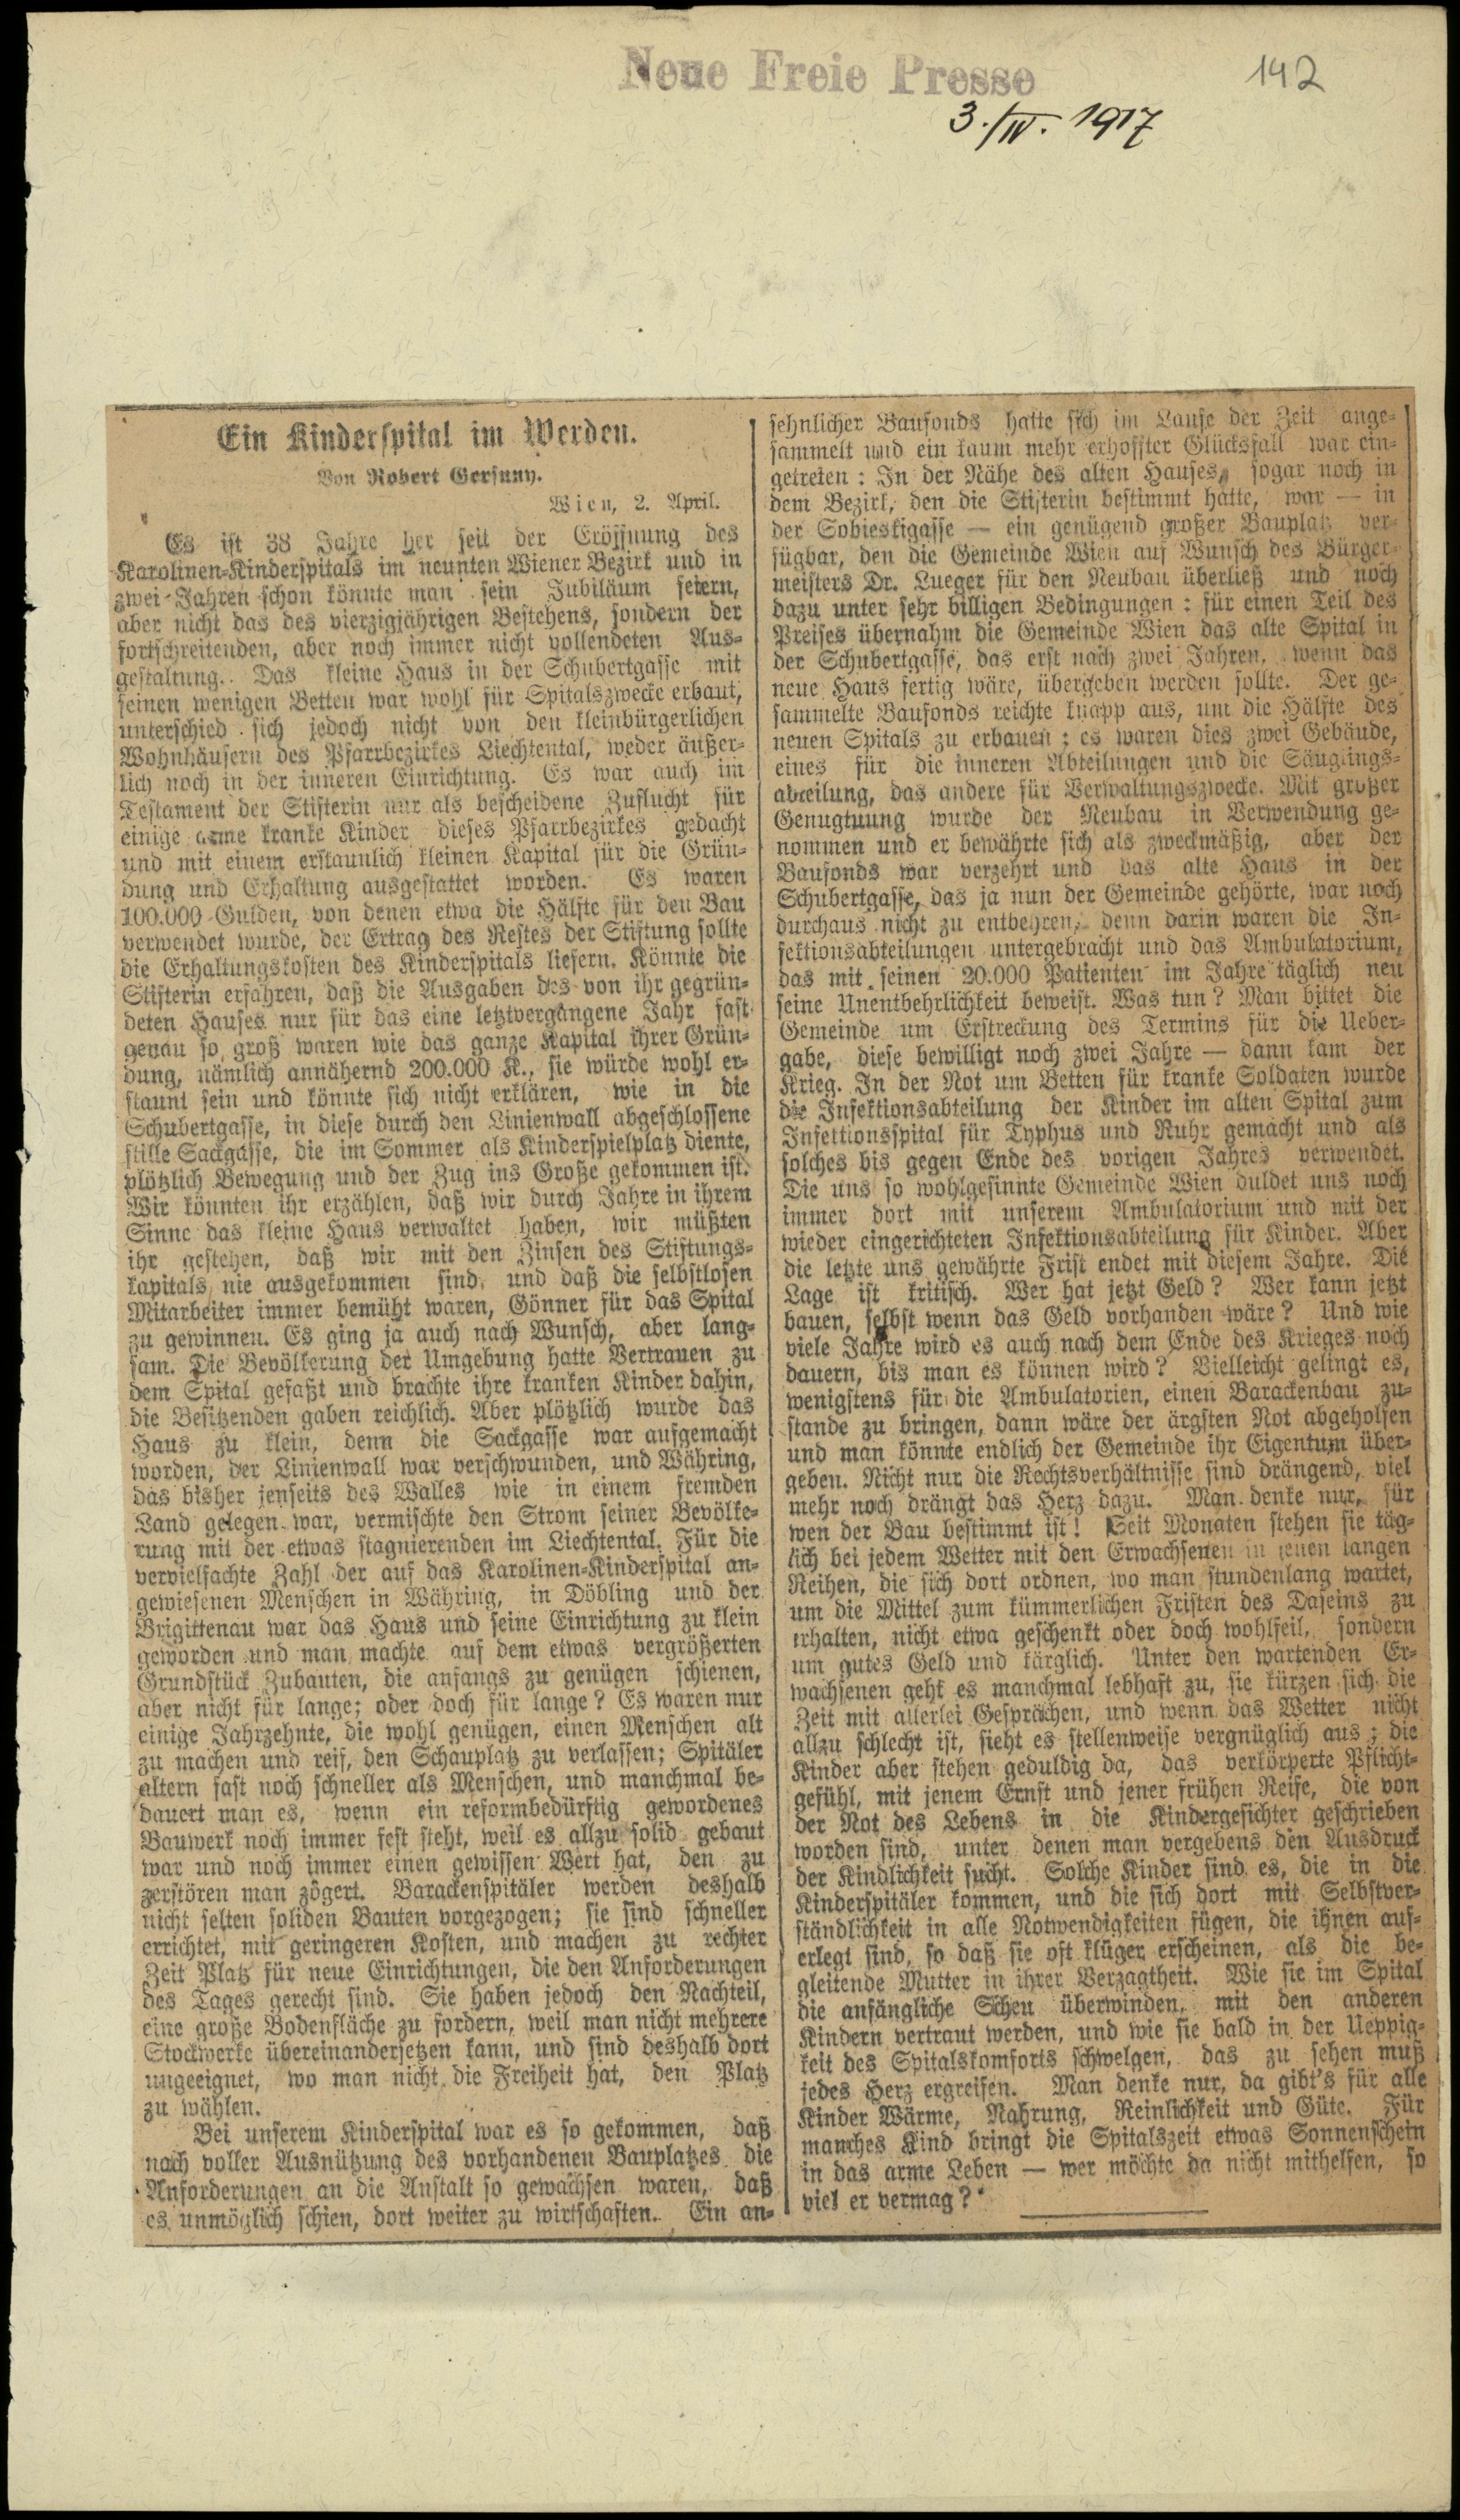 Neue Freie Presse
142
3./IV. 1917
Ein Kinderspital im Werden.
Von Robert Gersuny.
Wien, 2. April.
Es ist 38 Jahre her seit der Eröffnung des
Karolinen-Kinderspitals im neunten Wiener Bezirk und in
zwei Jahren schon könnte man sein Jubiläum feiern,
aber nicht das des vierzigjährigen Bestehens, sondern der
fortschreitenden, aber noch immer nicht vollendeten Aus-
gestaltung. Das kleine Haus in der Schubertgasse mit
seinen wenigen Betten war wohl für Spitalszwecke erbaut,
unterschied sich jedoch nicht von den kleinbürgerlichen
Wohnhäusern des Pfarrbezirkes Liechtental, weder äußer-
lich noch in der inneren Einrichtung. Es war auch im
Testament der Stifterin nur als bescheidene Zuflucht für
einige arme kranke Kinder dieses Pfarrbezirkes gedacht
und mit einem erstaunlich kleinen Kapital für die Grün-
dung und Erhaltung ausgestattet worden. Es waren
100.000 Gulden, von denen etwa die Hälfte für den Bau
verwendet wurde, der Ertrag des Restes der Stiftung sollte
die Erhaltungskosten des Kinderspitals liefern. Könnte die
Stifterin erfahren, daß die Ausgaben des von ihr gegrün-
deten Hauses nur für das eine letztvergangene Jahr fast
genau so groß waren wie das ganze Kapital ihrer Grün-
dung, nämlich annähernd 200.000 K., sie würde wohl er-
staunt sein und könnte sich nicht erklären, wie in die
Schubertgasse, in diese durch den Linienwall abgeschlossene
stille Sackgasse, die im Sommer als Kinderspielplatz diente,
plötzlich Bewegung und der Zug ins Große gekommen ist.
Wir könnten ihr erzählen, daß wir durch Jahre in ihrem
Sinne das kleine Haus verwaltet haben, wir müßten
ihr gestehen, daß wir mit den Zinsen des Stiftungs-
kapitals nie ausgekommen sind, und daß die selbstlosen
Mitarbeiter immer bemüht waren, Gönner für das Spital
zu gewinnen. Es ging ja auch nach Wunsch, aber lang-
sam. Die Bevölkerung der Umgebung hatte Vertrauen zu
dem Spital gefaßt und brachte ihre kranken Kinder dahin,
die Besitzenden gaben reichlich. Aber plötzlich wurde das
Haus zu klein, denn die Sackgasse war aufgemacht
worden, der Linienwall war verschwunden, und Währing,
das bisher jenseits des Walles wie in einem fremden
Land gelegen war, vermischte den Strom seiner Bevölke-
rung mit der etwas stagnierenden im Liechtental. Für die
vervielfachte Zahl der auf das Karolinen-Kinderspital an-
gewiesenen Menschen in Währing, in Döbling und der
Brigittenau war das Haus und seine Einrichtung zu klein
geworden und man machte auf dem etwas vergrößerten
Grundstück Zubauten, die anfangs zu genügen schienen,
aber nicht für lange; oder doch für lange? Es waren nur
einige Jahrzehnte, die wohl genügen, einen Menschen alt
zu machen und reif, den Schauplatz zu verlassen; Spitäler
altern fast noch schneller als Menschen, und manchmal be-
dauert man es, wenn ein reformbedürftig gewordenes
Bauwerk noch immer fest steht, weil es allzu solid gebaut
war und noch immer einen gewissen Wert hat, den zu
zerstören man zögert. Barackenspitäler werden deshalb
nicht selten soliden Bauten vorgezogen; sie sind schneller
errichtet, mit geringeren Kosten, und machen zu rechter
Zeit Platz für neue Einrichtungen, die den Anforderungen
des Tages gerecht sind. Sie haben jedoch den Nachteil,
eine große Bodenfläche zu fordern, weil man nicht mehrere
Stockwerke übereinandersetzen kann, und sind deshalb dort
ungeeignet, wo man nicht die Freiheit hat, den Platz
zu wählen.
Bei unserem Kinderspital war es so gekommen, daß
nach voller Ausnützung des vorhandenen Bauplatzes die
Anforderungen an die Anstalt so gewachsen waren, daß
es unmöglich schien, dort weiter zu wirtschaften. Ein an-
sehnlicher Baufonds hatte sich im Laufe der Zeit ange-
sammelt und ein kaum mehr erhoffter Glücksfall war ein-
getreten: In der Nähe des alten Hauses, sogar noch in
dem Bezirk, den die Stifterin bestimmt hatte, war — in
der Sobieskigasse — ein genügend großer Bauplatz ver-
fügbar, den die Gemeinde Wien auf Wunsch des Bürger-
meisters Dr. Lueger für den Neubau überließ und noch
dazu unter sehr billigen Bedingungen: für einen Teil des
Preises übernahm die Gemeinde Wien das alte Spital in
der Schubertgasse, das erst nach zwei Jahren, wenn das
neue Haus fertig wäre, übergeben werden sollte. Der ge-
sammelte Baufonds reichte knapp aus, um die Hälfte des
neuen Spitals zu erbauen; es waren dies zwei Gebäude,
eines für die inneren Abteilungen und die Säuglings-
abteilung, das andere für Verwaltungszwecke. Mit großer
Genugtuung wurde der Neubau in Verwendung ge-
nommen und er bewährte sich als zweckmäßig, aber der
Baufonds war verzehrt und das alte Haus in der
Schubertgasse, das ja nun der Gemeinde gehörte, war noch
durchaus nicht zu entbehren, denn darin waren die In-
fektionsabteilungen untergebracht und das Ambulatorium,
das mit seinen 20.000 Patienten im Jahre täglich neu
seine Unentbehrlichkeit beweist. Was tun? Man bittet die
Gemeinde um Erstreckung des Termins für die Ueber-
gabe, diese bewilligt noch zwei Jahre — dann kam der
Krieg. In der Not um Betten für kranke Soldaten wurde
die Infektionsabteilung der Kinder im alten Spital zum
Infektionsspital für Typhus und Ruhr gemacht und als
solches bis gegen Ende des vorigen Jahres verwendet.
Die uns so wohlgesinnte Gemeinde Wien duldet uns noch
immer dort mit unserem Ambulatorium und mit der
wieder eingerichteten Infektionsabteilung für Kinder. Aber
die letzte uns gewährte Frist endet mit diesem Jahre. Die
Lage ist kritisch. Wer hat jetzt Geld? Wer kann jetzt
bauen, selbst wenn das Geld vorhanden wäre? Und wie
viele Jahre wird es auch nach dem Ende des Krieges noch
dauern, bis man es können wird? Vielleicht gelingt es,
wenigstens für die Ambulatorien, einen Barackenbau zu-
stande zu bringen, dann wäre der ärgsten Not abgeholfen
und man könnte endlich der Gemeinde ihr Eigentum über-
geben. Nicht nur die Rechtsverhältnisse sind drängend, viel
mehr noch drängt das Herz dazu. Man denke nur, für
wen der Bau bestimmt ist! Seit Monaten stehen sie täg-
lich bei jedem Wetter mit den Erwachsenen in jenen langen
Reihen, die sich dort ordnen, wo man stundenlang wartet,
um die Mittel zum kümmerlichen Fristen des Daseins zu
erhalten, nicht etwa geschenkt oder doch wohlfeil, sondern
um gutes Geld und kärglich. Unter den wartenden Er-
wachsenen geht es manchmal lebhaft zu, sie kürzen sich die
Zeit mit allerlei Gesprächen, und wenn das Wetter nicht
allzu schlecht ist, sieht es stellenweise vergnüglich aus; die
Kinder aber stehen geduldig da, das verkörperte Pflicht-
gefühl, mit jenem Ernst und jener frühen Reife, die von
der Not des Lebens in die Kindergesichter geschrieben
worden sind, unter denen man vergebens den Ausdruck
der Kindlichkeit sucht. Solche Kinder sind es, die in die
Kinderspitäler kommen, und die sich dort mit Selbstver-
ständlichkeit in alle Notwendigkeiten fügen, die ihnen auf-
erlegt sind, so daß sie oft klüger erscheinen, als die be-
gleitende Mutter in ihrer Verzagtheit. Wie sie im Spital
die anfängliche Scheu überwinden, mit den anderen
Kindern vertraut werden, und wie sie bald in der Ueppig-
keit des Spitalskomforts schwelgen, das zu sehen muß
jedes Herz ergreifen. Man denke nur, da gibt's für alle
Kinder Wärme, Nahrung, Reinlichkeit und Güte. Für
manches Kind bringt die Spitalszeit etwas Sonnenschein
in das arme Leben — wer möchte da nicht mithelfen, so
viel er vermag?